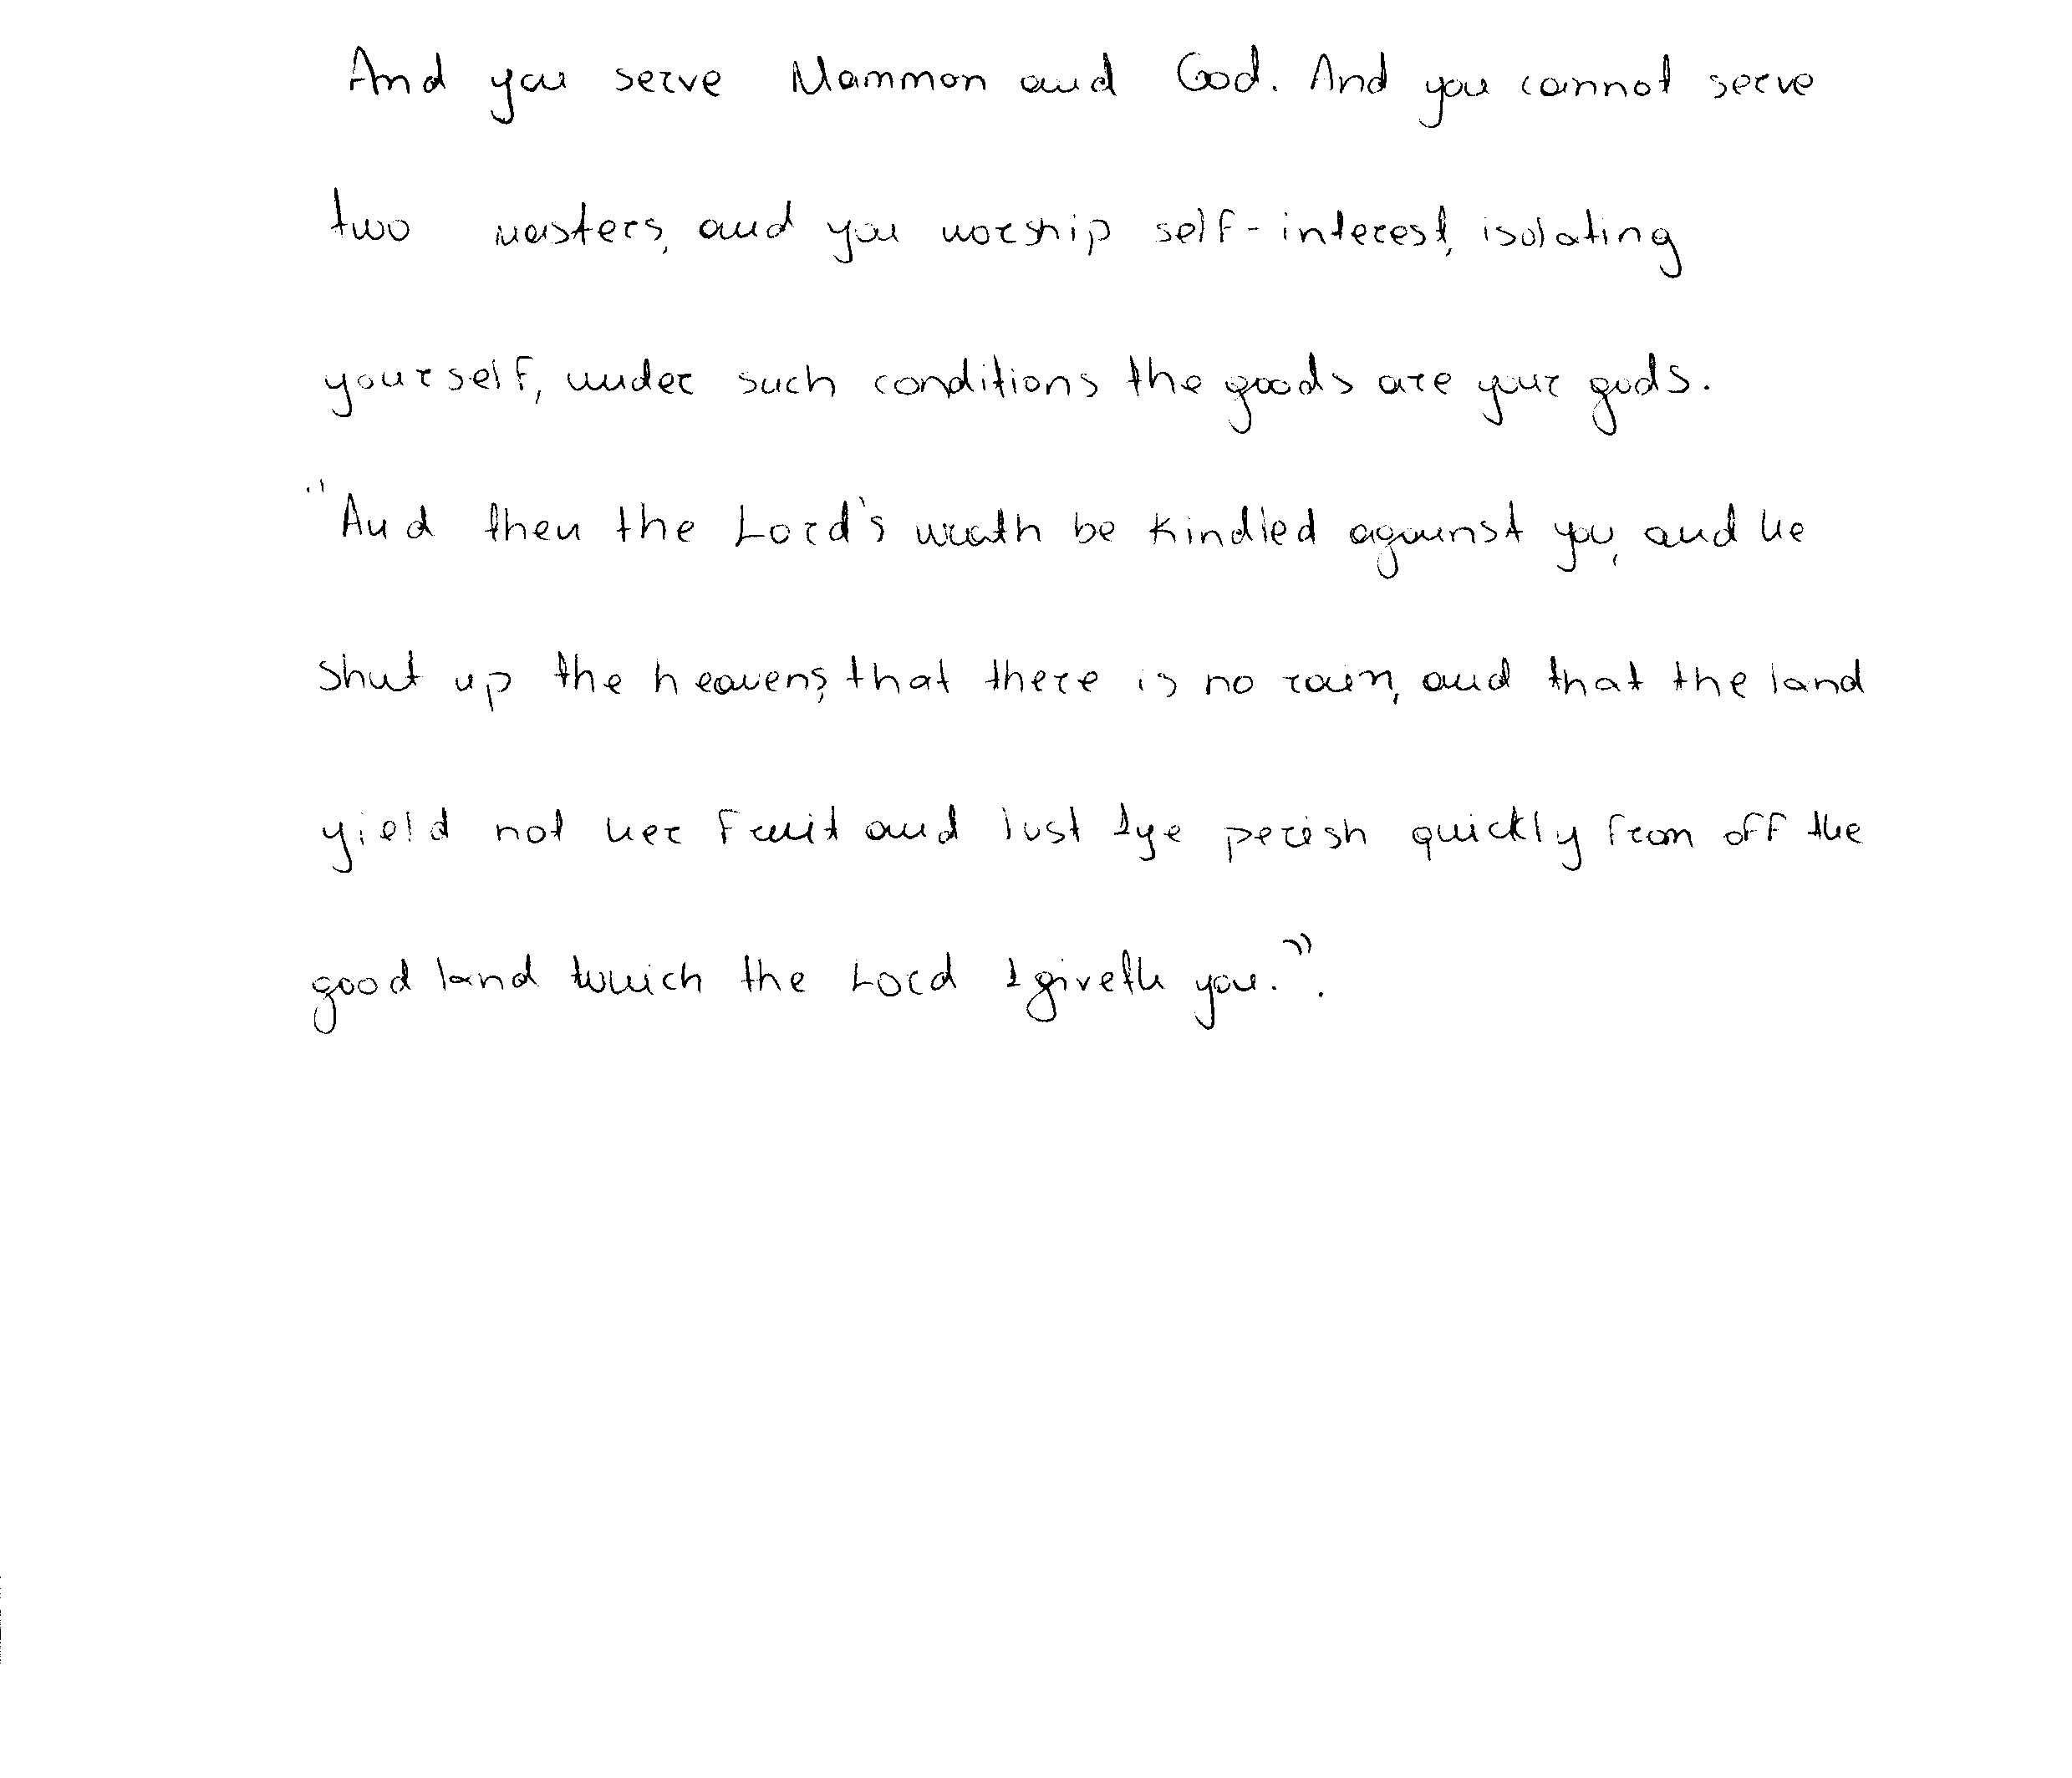 And you serve Mammon and God. And you cannot serve
two masters, and you worship self-interest, isolating
yourself, under such conditions the goods are your gods.
"And then the Lord's wrath be kindled against you, and he
shut up the heavens, that there is no rain, and that the land
yield not her fruit and lust 1ye perish quickly from off the
good land which the Lord 1giveth you.".